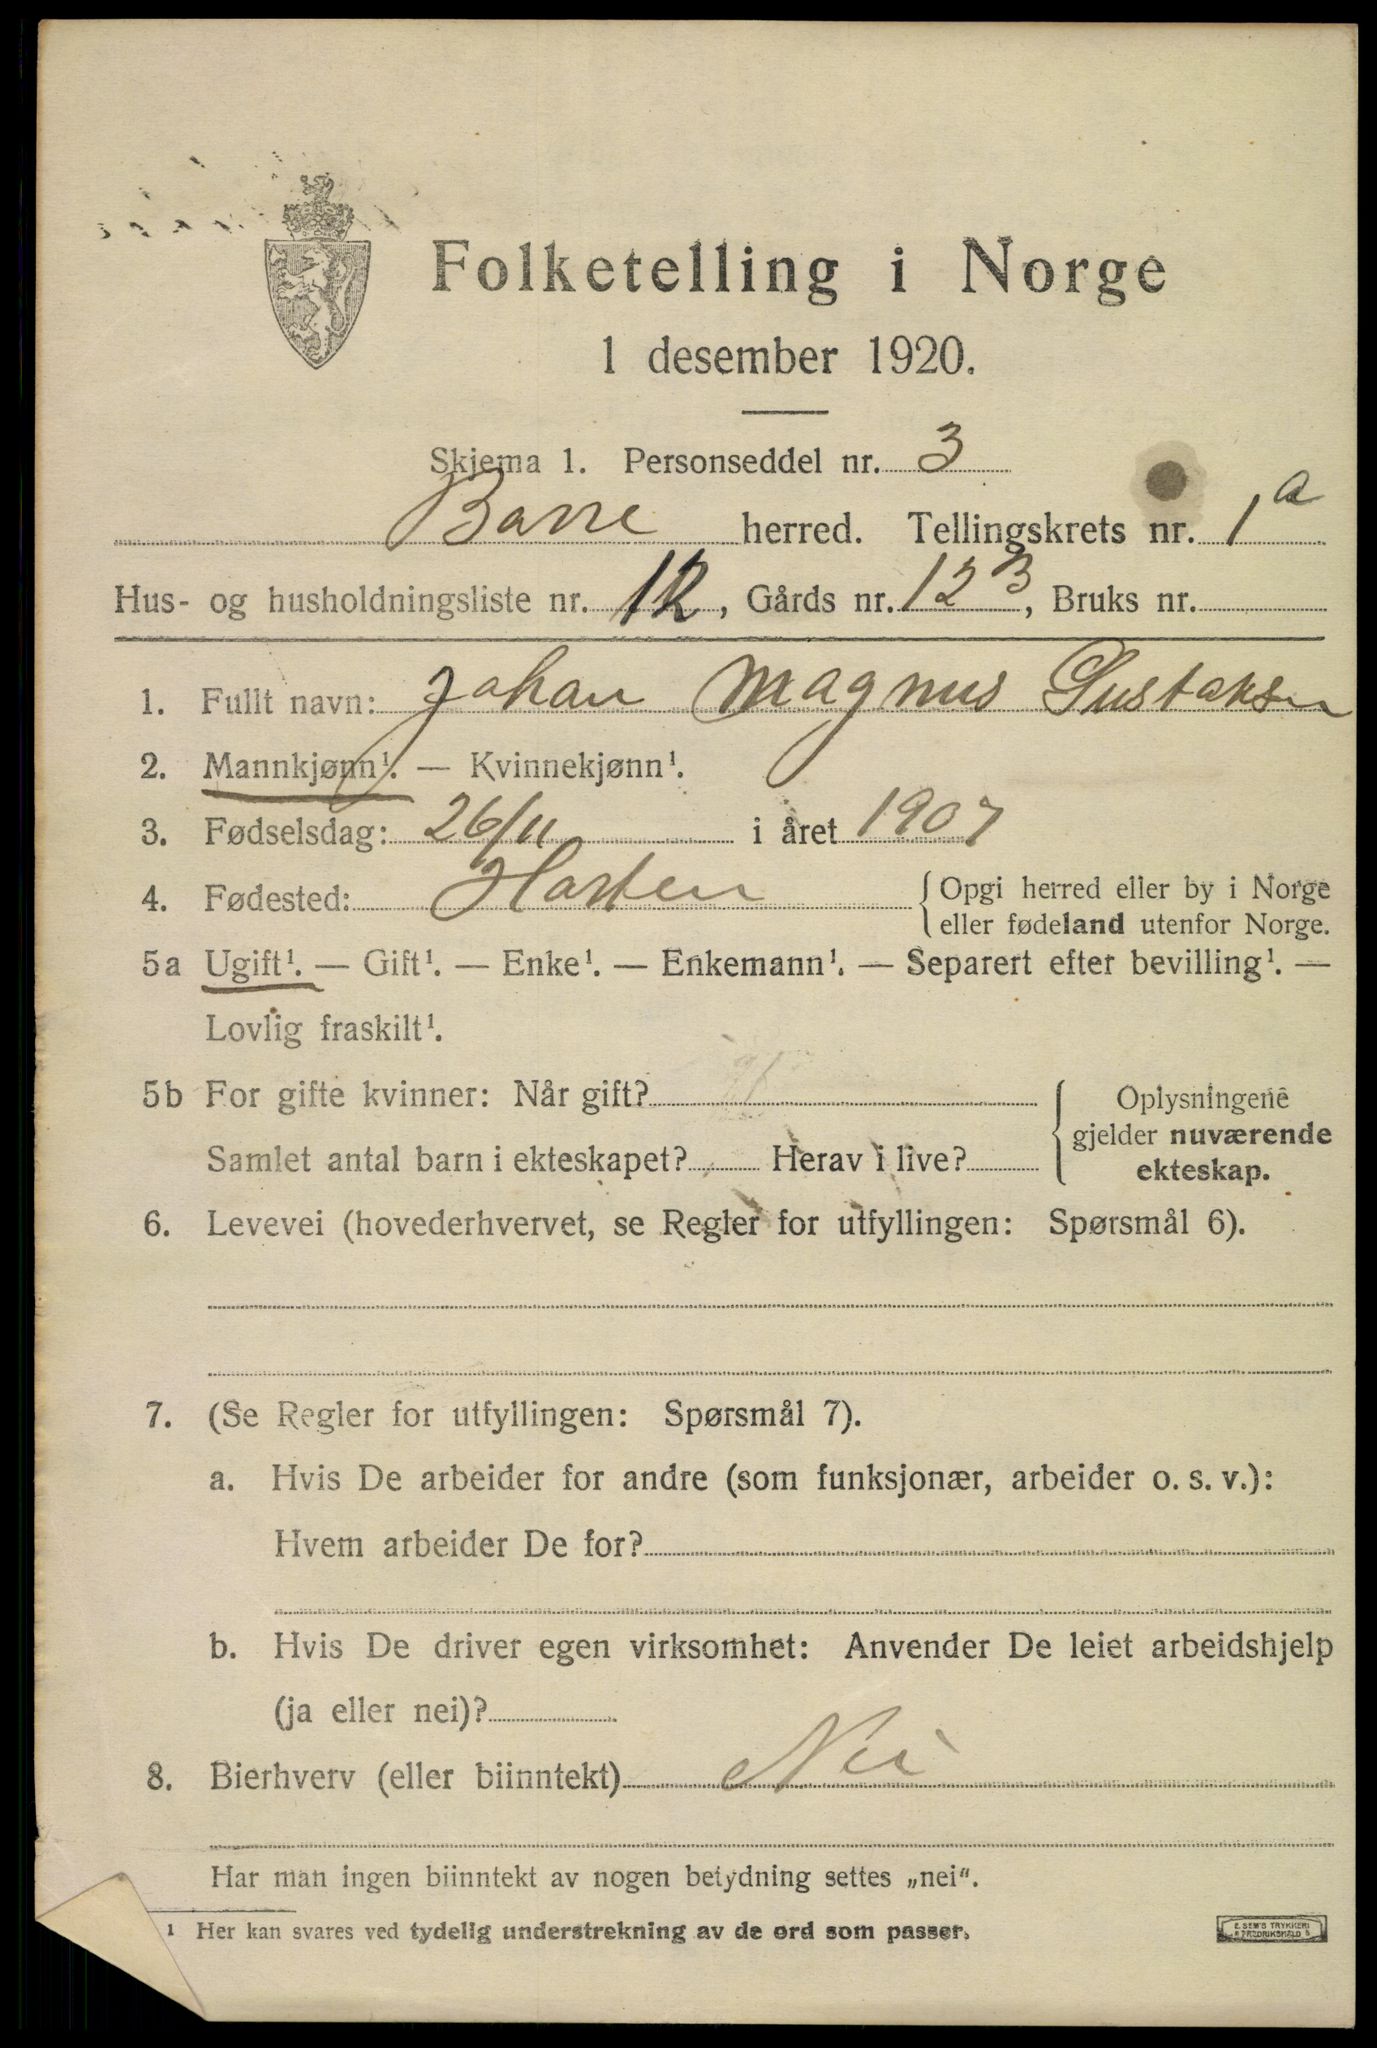 Folketelling i Norge
1 desember 1920.
Skjema 1. Personseddel nr. 3
Borre herred. Tellingskrets nr. 1 a
Hus- og husholdningsliste nr. 12, Gårds nr. 123, Bruks nr.
1. Fullt navn: Johan Magnus Gustaksen
2. Mannkjønn¹. — Kvinnekjønn¹.
3. Fødselsdag: 26/11 i året 1907
4. Fødested: Horten { Opgi herred eller by i Norge
eller fødeland utenfor Norge.
5a Ugift¹. — Gift¹. — Enke¹. — Enkemann¹. — Separert efter bevilling¹. —
Lovlig fraskilt¹.
5b For gifte kvinner: Når gift?
Samlet antal barn i ekteskapet? Herav i live?
Oplysningene
gjelder nuværende
ekteskap.
6. Levevei (hovederhvervet, se Regler for utfyllingen: Spørsmål 6).
7. (Se Regler for utfyllingen: Spørsmål 7).
a. Hvis De arbeider for andre (som funksjonær, arbeider o. s. v.):
Hvem arbeider De for?
b. Hvis De driver egen virksomhet: Anvender De leiet arbeidshjelp
(ja eller nei)?
8. Bierhverv (eller biinntekt) Nei
Har man ingen biinntekt av nogen betydning settes „nei".
¹ Her kan svares ved tydelig understrekning av de ord som passer.
E. SEM'S TRYKKERI
FREDRIKSHALD